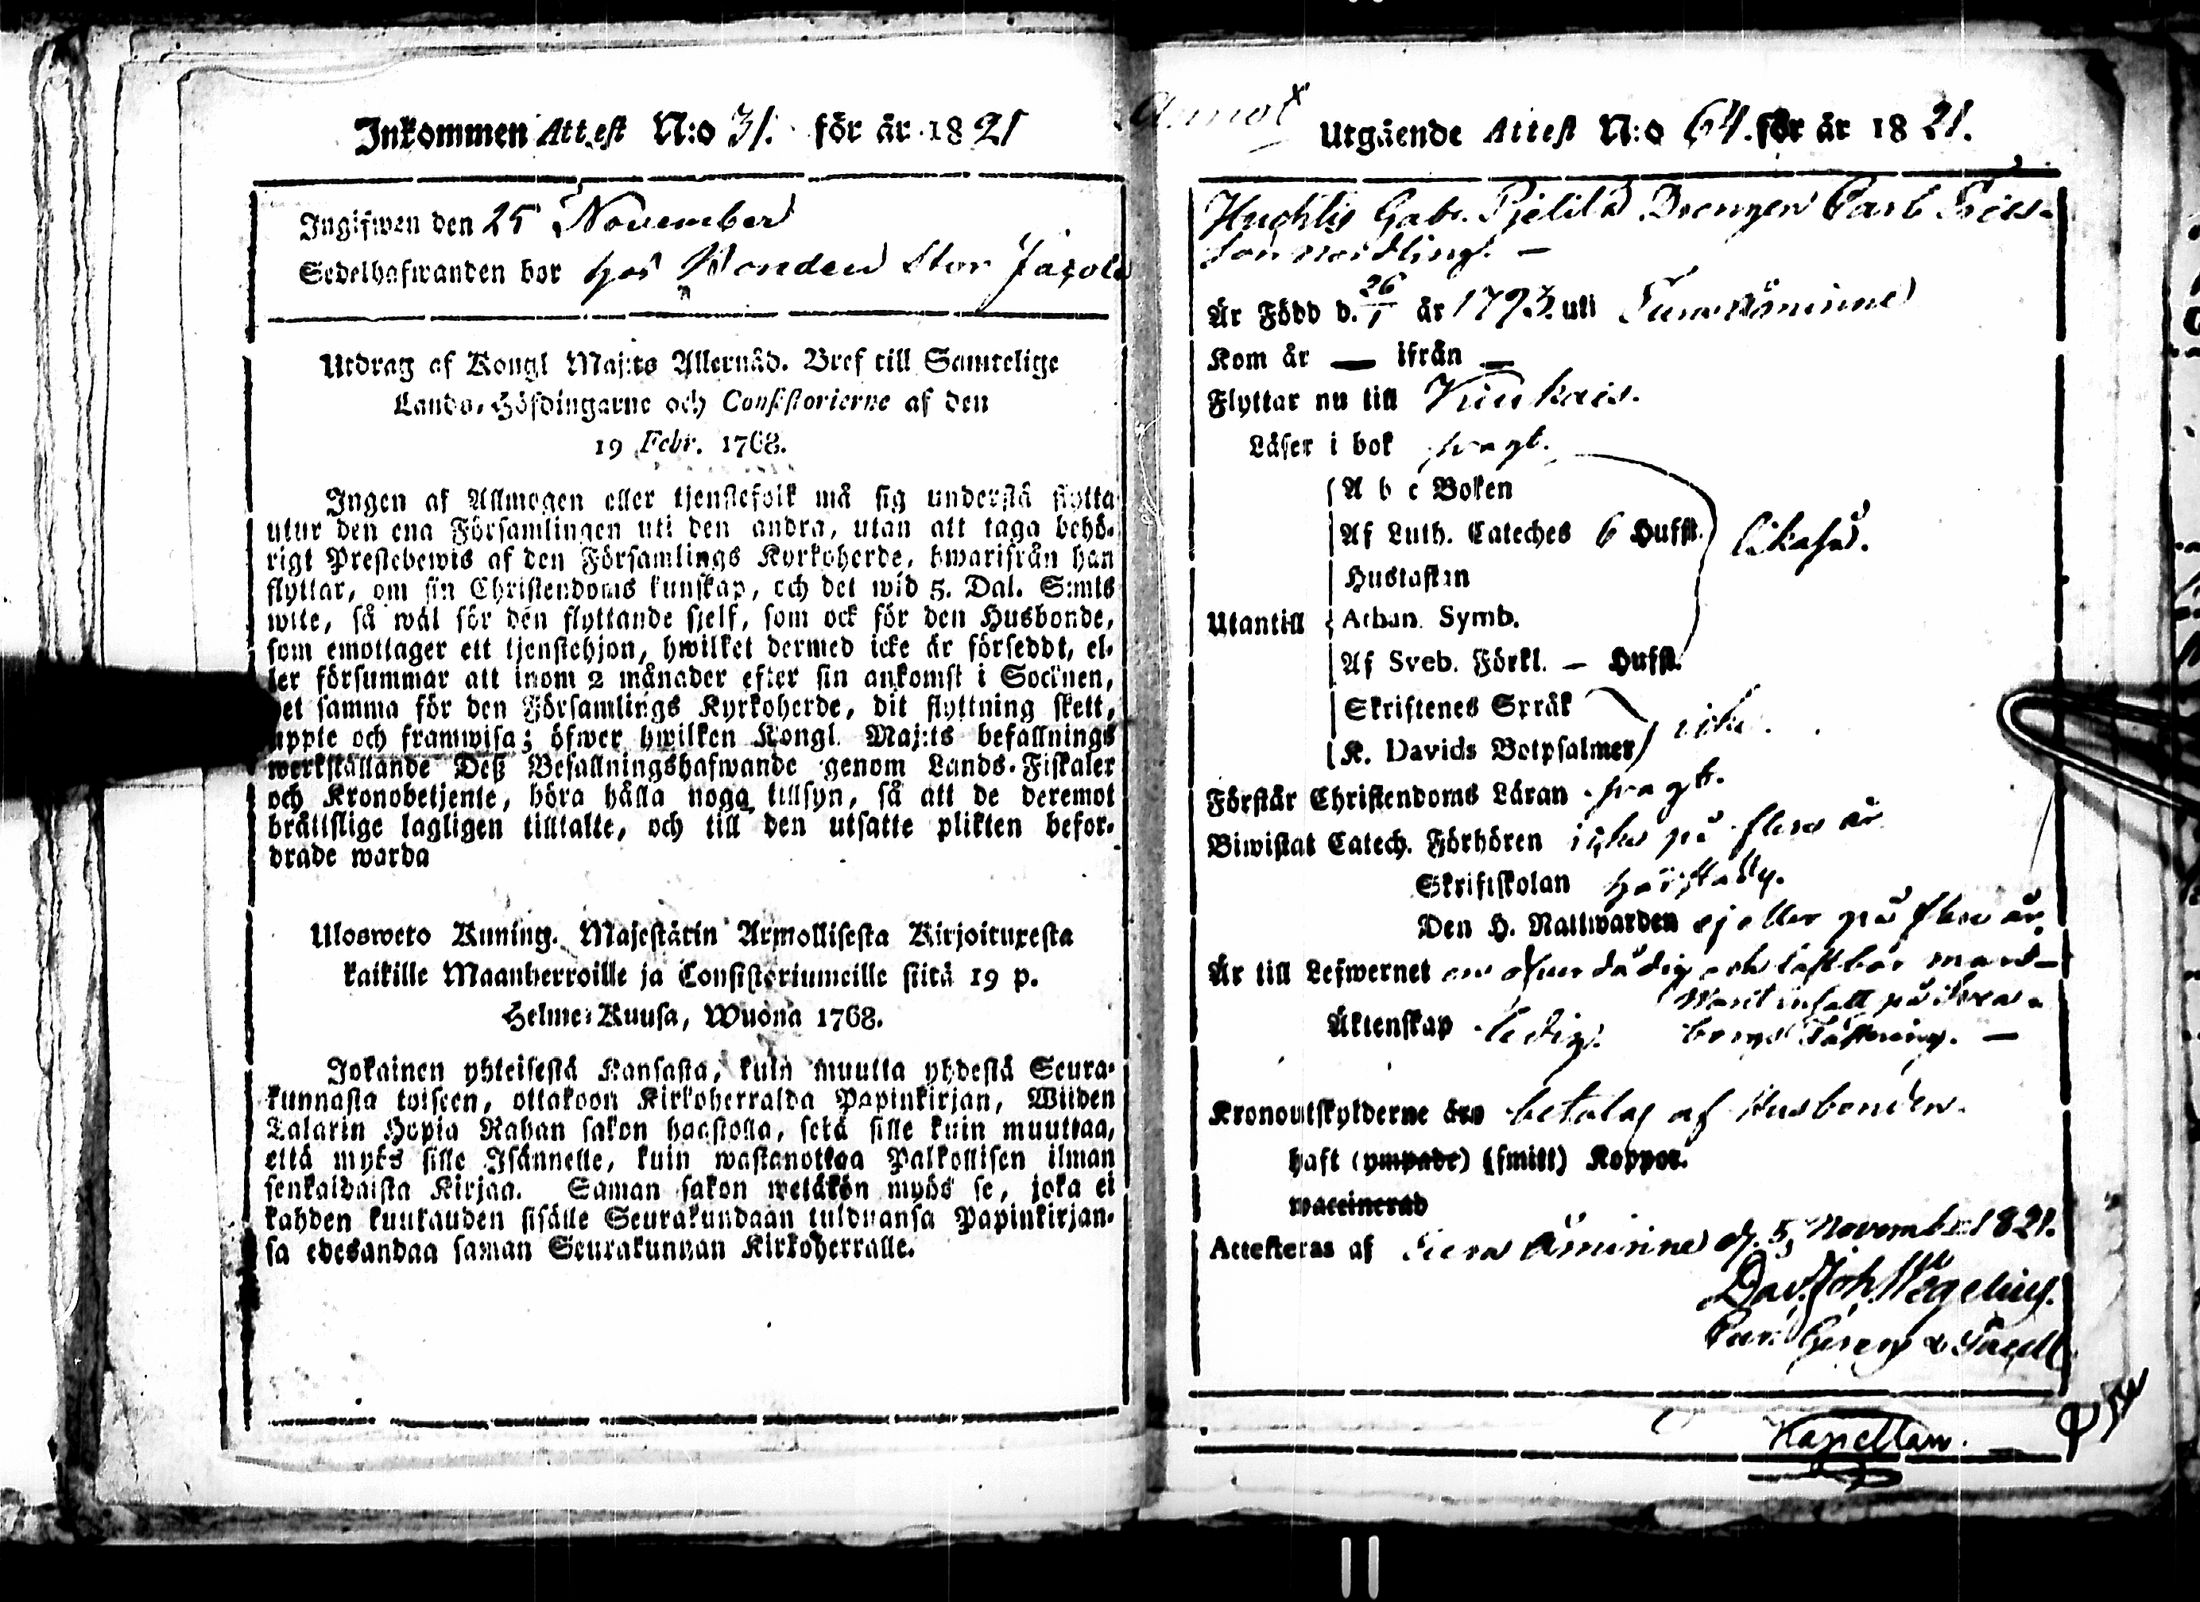 Inkommen Attest N:o 31. för år 1821
Ingifwen den 25 November
Sedelhafwanden bor hos Bonden Stor Jacola
Utdrag af Kongl Maj:ts Allernåd. Bref till Samtelige
Lands-Höfdingarne och Consistorierne af den
19 Febr. 1768.
Ingen af Allmogen eller tjenstefolk må sig understå flytta
utur den ena Församlingen uti den andra, utan att taga behö-
rigt Prestebewis af den Församlings Kyrkoherde, hwarifrån han
flyttar, om sin Christendoms kunskap, och det wid 5. Dal. S:mts
wite, så wäl för den flyttande sjelf, som ock för den Husbonde,
som emottager ett tjenstehjon, hwilket dermed icke är förseddt, el-
ler försummar att inom 2 månader efter sin ankomst i Socknen,
det samma för den Församlings Kyrkoherde, dit flyttning skett,
uppte och framwisa; öfwer hwilken Kongl. Maj:ts befallnings
werkställande Deß Befallningshafwande genom Lands-Fiskaler
och Kronobetjente, böra hålla noga tillsyn, så att de deremot
bråttslige lagligen tilltalte, och till den utsatte plikten befor-
drade warda
Uloswето Kuning. Majestätin Armollisesta Kirjoituxesta
kaikille Maanherroille ja Consistoriumeille siitä 19 p.
Helme-Kuusa, Wuona 1768.
Jokainen yhteisestä Kansasta, kuin muutta yhdestä Seura-
kunnasta toiseen, ottakoon Kirkoherralda Papinkirjan, Wiiden
Talarin Hopia Rahan sakon haastolla, setä sille kuin muuttaa,
että myös sille Isännelle, kuin wastanottaa Palkollisen ilman
senkaldaista Kirjaa. Saman sakon wetäkön myös se, joka ei
kahden kuukauden sisälle Seurakundaan tulduansa Papinkirjan-
sa edesandaa saman Seurakunnan Kirkoherralle.
Annot
Utgående Attest N:o 64. för år 1821.
Hughtis Gab. Pjelila Drengen Carl Eries-
son Nordling. —
Är Född d. 26/1 år 1793. uti Tenala
Kom år — ifrån —
Flyttar nu till Kiukais.
Läser i bok swagt.
A b c Boken
Af Luth. Cateches 6 Hufst. likaså.
Hustaflan
Utantill Athan. Symb.
Af Sveb. Förkl. — Hufst.
Skriftenes Språk
K. Davids Botpsalmer icke.
Förstår Christendoms Läran swagt.
Biwistat Catech. Förhören icke på flera år
Skriftskolan
Den H. Nattwarden ej eller på flera år.
Är till Lefwernet en och lastbar man —
Warit intalt på Swea-
Äktenskap ledig. borgs Fästning. —
Kronoutskylderne äro betalas af Husbonden.
haft (ympade) (smitt) Koppor.
waccinerad
Attesteras af d. 5 November 1821.
Dav. Joh. Wegelius.
Kapellan.